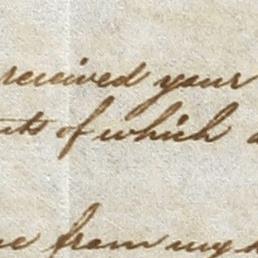 received your
of which
from my